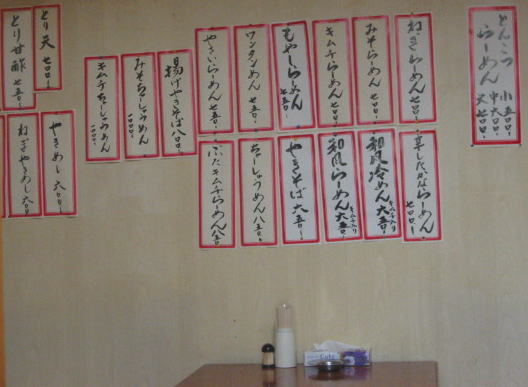 とんこつらーめん 小五〇〇- 中六〇〇- 大七〇〇-
ねぎらーめん 七〇〇-
みそらーめん 七〇〇-
キムチらーめん 七五〇-
もやしらーめん 七五〇-
ワンタンめん 七五〇-
やさいらーめん 七五〇-
辛したかならーめん 七〇〇-
和風冷めん 六五〇- キムチ入り
和風らーめん 六五〇- キムチ入り
やきそば 六五〇-
ちゃーしゅうめん 八五〇-
ぶたキムチらーめん 八五〇-
揚げやきそば 八〇〇-
みそちゃーしゅうめん 一〇〇〇-
キムチちゃーしゅうめん 一〇〇〇-
とり天 七〇〇-
とり甘酢 七五〇-
やきめし 六〇〇-
ねぎやきめし 六〇〇-